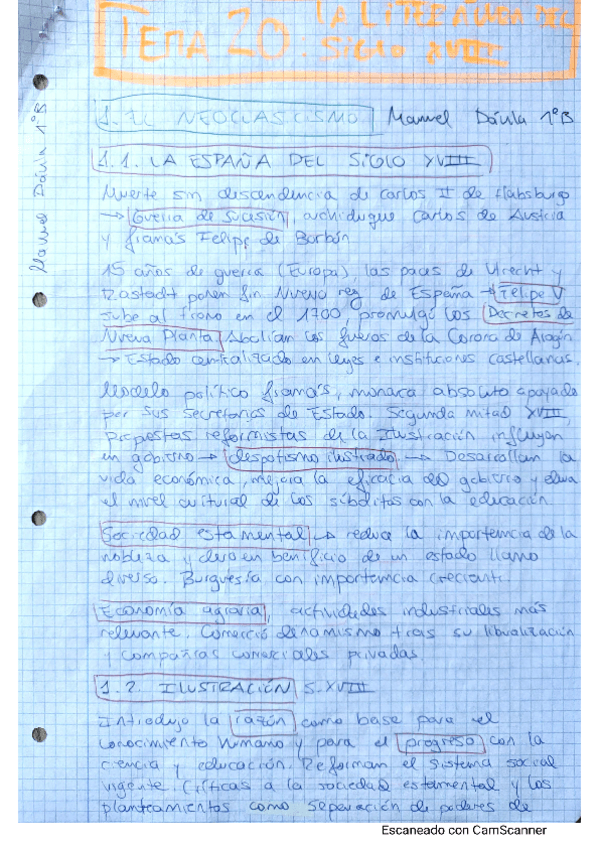 LA LITERATURA DEL
TEMA 20: SIGLO XVIII
1. EL NEOCLASICISMO Manuel Dávila 1ºB
Manuel Dávila 1ºB
1.1. LA ESPAÑA DEL SIGLO XVIII
Muerte sin descendencia de Carlos II de Habsburgo
→ Guerra de Sucesión, archiduque Carlos de Austria
y francés Felipe de Borbón
15 años de guerra (Europa), las paces de Utrecht y
Rastadt ponen fin. Nuevo rey de España → Felipe V
sube al trono en el 1700, promulgó los Decretos de
Nueva Planta Abolían los fueros de la Corona de Aragón
→ Estado centralizado en leyes e instituciones castellanas.
Modelo político francés, monarca absoluto apoyado
por sus secretarios de Estado. Segunda mitad XVIII,
propuestas reformistas de la Ilustración influyen
en gobierno → despotismo ilustrado → Desarrollan la
vida económica, mejora la eficacia del gobierno y eleva
el nivel cultural de los súbditos con la educación.
Sociedad estamental → reduce la importancia de la
nobleza y clero en beneficio de un estado llano
diverso. Burguesía con importancia creciente.
Economía agraria, actividades industriales más
relevante. Comercio dinamismo tras su liberalización
y compañías comerciales privadas.
1.2. ILUSTRACIÓN S.XVIII
Introdujo la razón como base para el
conocimiento humano y para el progreso con la
ciencia y educación. Reforman el sistema social
vigente. Críticas a la sociedad estamental y los
planteamientos como separación de poderes de
Escaneado con CamScanner